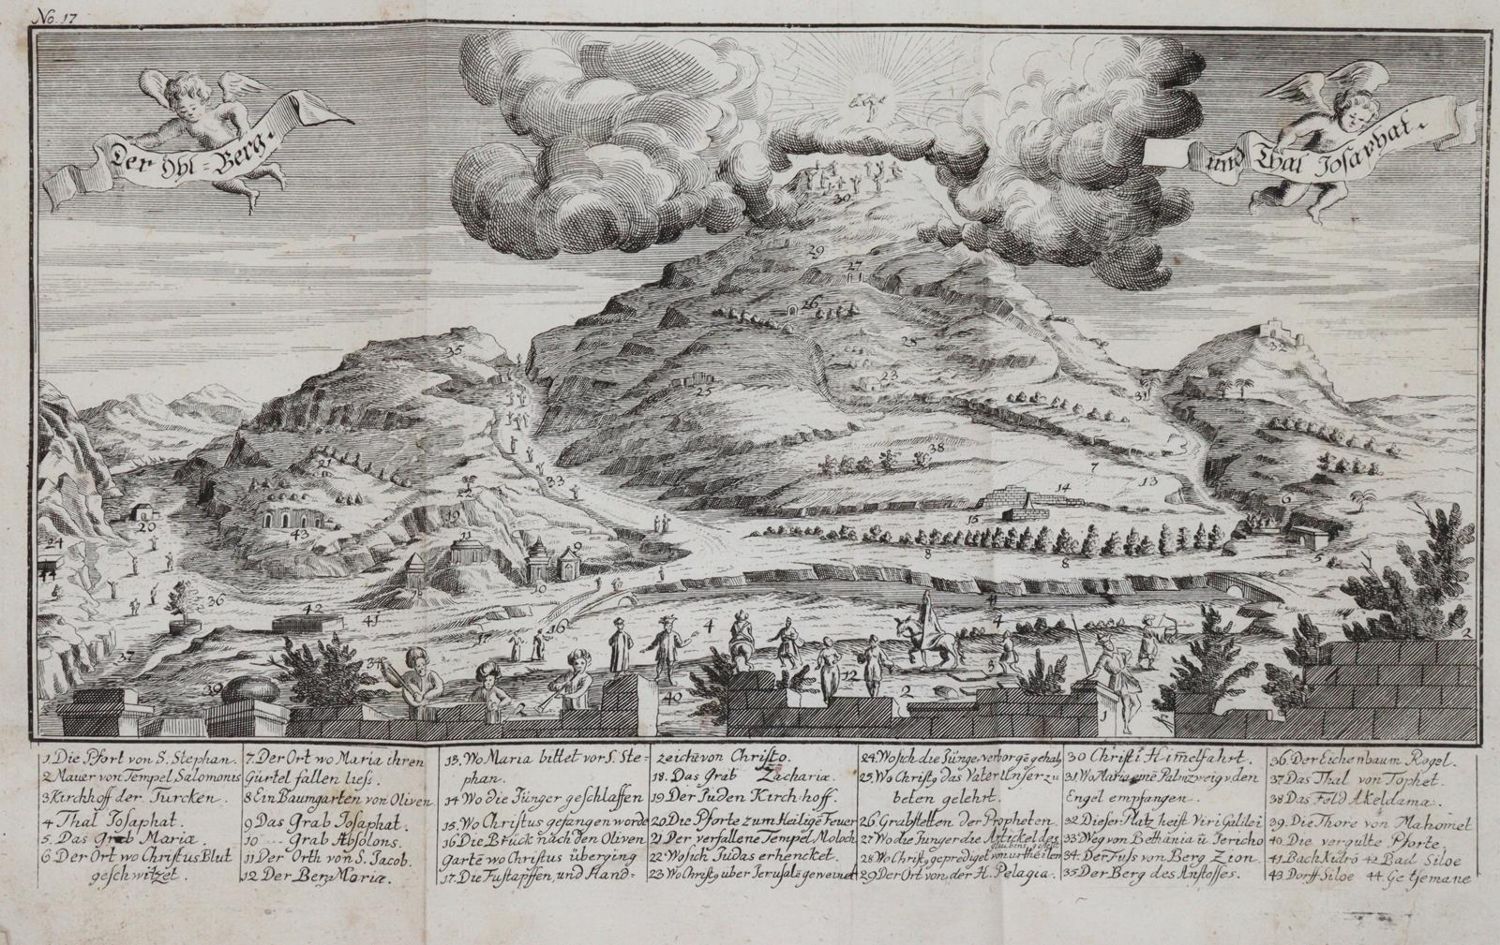 No. 17
Der Ohl=Berg.
und Thal Josaphat.
1. Die Pfort von S. Stephan.
2 Mauer von Tempel Salomonis
3 Kirchhoff der Türcken.
4 Thal Josaphat.
5. Das Grab Mariæ.
6 Der Ort wo Christus Blut
geschwitzet.
7. Der Ort wo Maria ihren
Gürtel fallen liess.
8 Ein Baumgarten von Oliven
9 Das Grab Josaphat.
10 .... Grab Absolons.
11 Der Orth von S. Jacob.
12 Der Berg Moria.
13. Wo Maria bittet vor S. Ste-
phan.
14 Wo die Jünger geschlaffen
15. Wo Christus gefangen worde
16 Die Brück nach den Oliven
Garte wo Christus überging
17. Die Fustapffen, und Hand-
zeich von Christo.
18. Das Grab Zachariæ.
19 Der Juden Kirch-hoff.
20 Die Pforte zum Heilige Feuer
21 Der verfallene Tempel Moloch
22 Wo sich Judas erhencket.
23 Wo Christ9 über Jerusalē geweinet
24. Wo sich die Jünger verborgē gehab
25. Wo Christ9 das Vater Unser zu
beten gelehrt.
26 Grabstetten der Propheten
27 Wo die Junger die Artickel des
Glaubens gesetzt
28 Wo Christ9 geprediget von urtheilen
29 Der Ort von der H. Pelagia.
30 Christi Him̄elfahrt.
31 Wo Maria einē Palmzweig v. den
Engel empfangen.
32 Dieser Platz heist Viri Galilei
33 Weg von Bethania ū Jericho
34 Der Fuss von Berg Zion.
35 Der Berg des Anstosses.
36. Der Eichenbaum Rogel.
37 Das Thal von Tophet.
38 Das Feld Akeldama.
39. Die Thore von Mahomet
40 Die vergulte Pforte,
41 Bach Kidrō 42 Bad Siloe
43 Dorff Siloe 44. Getsemane